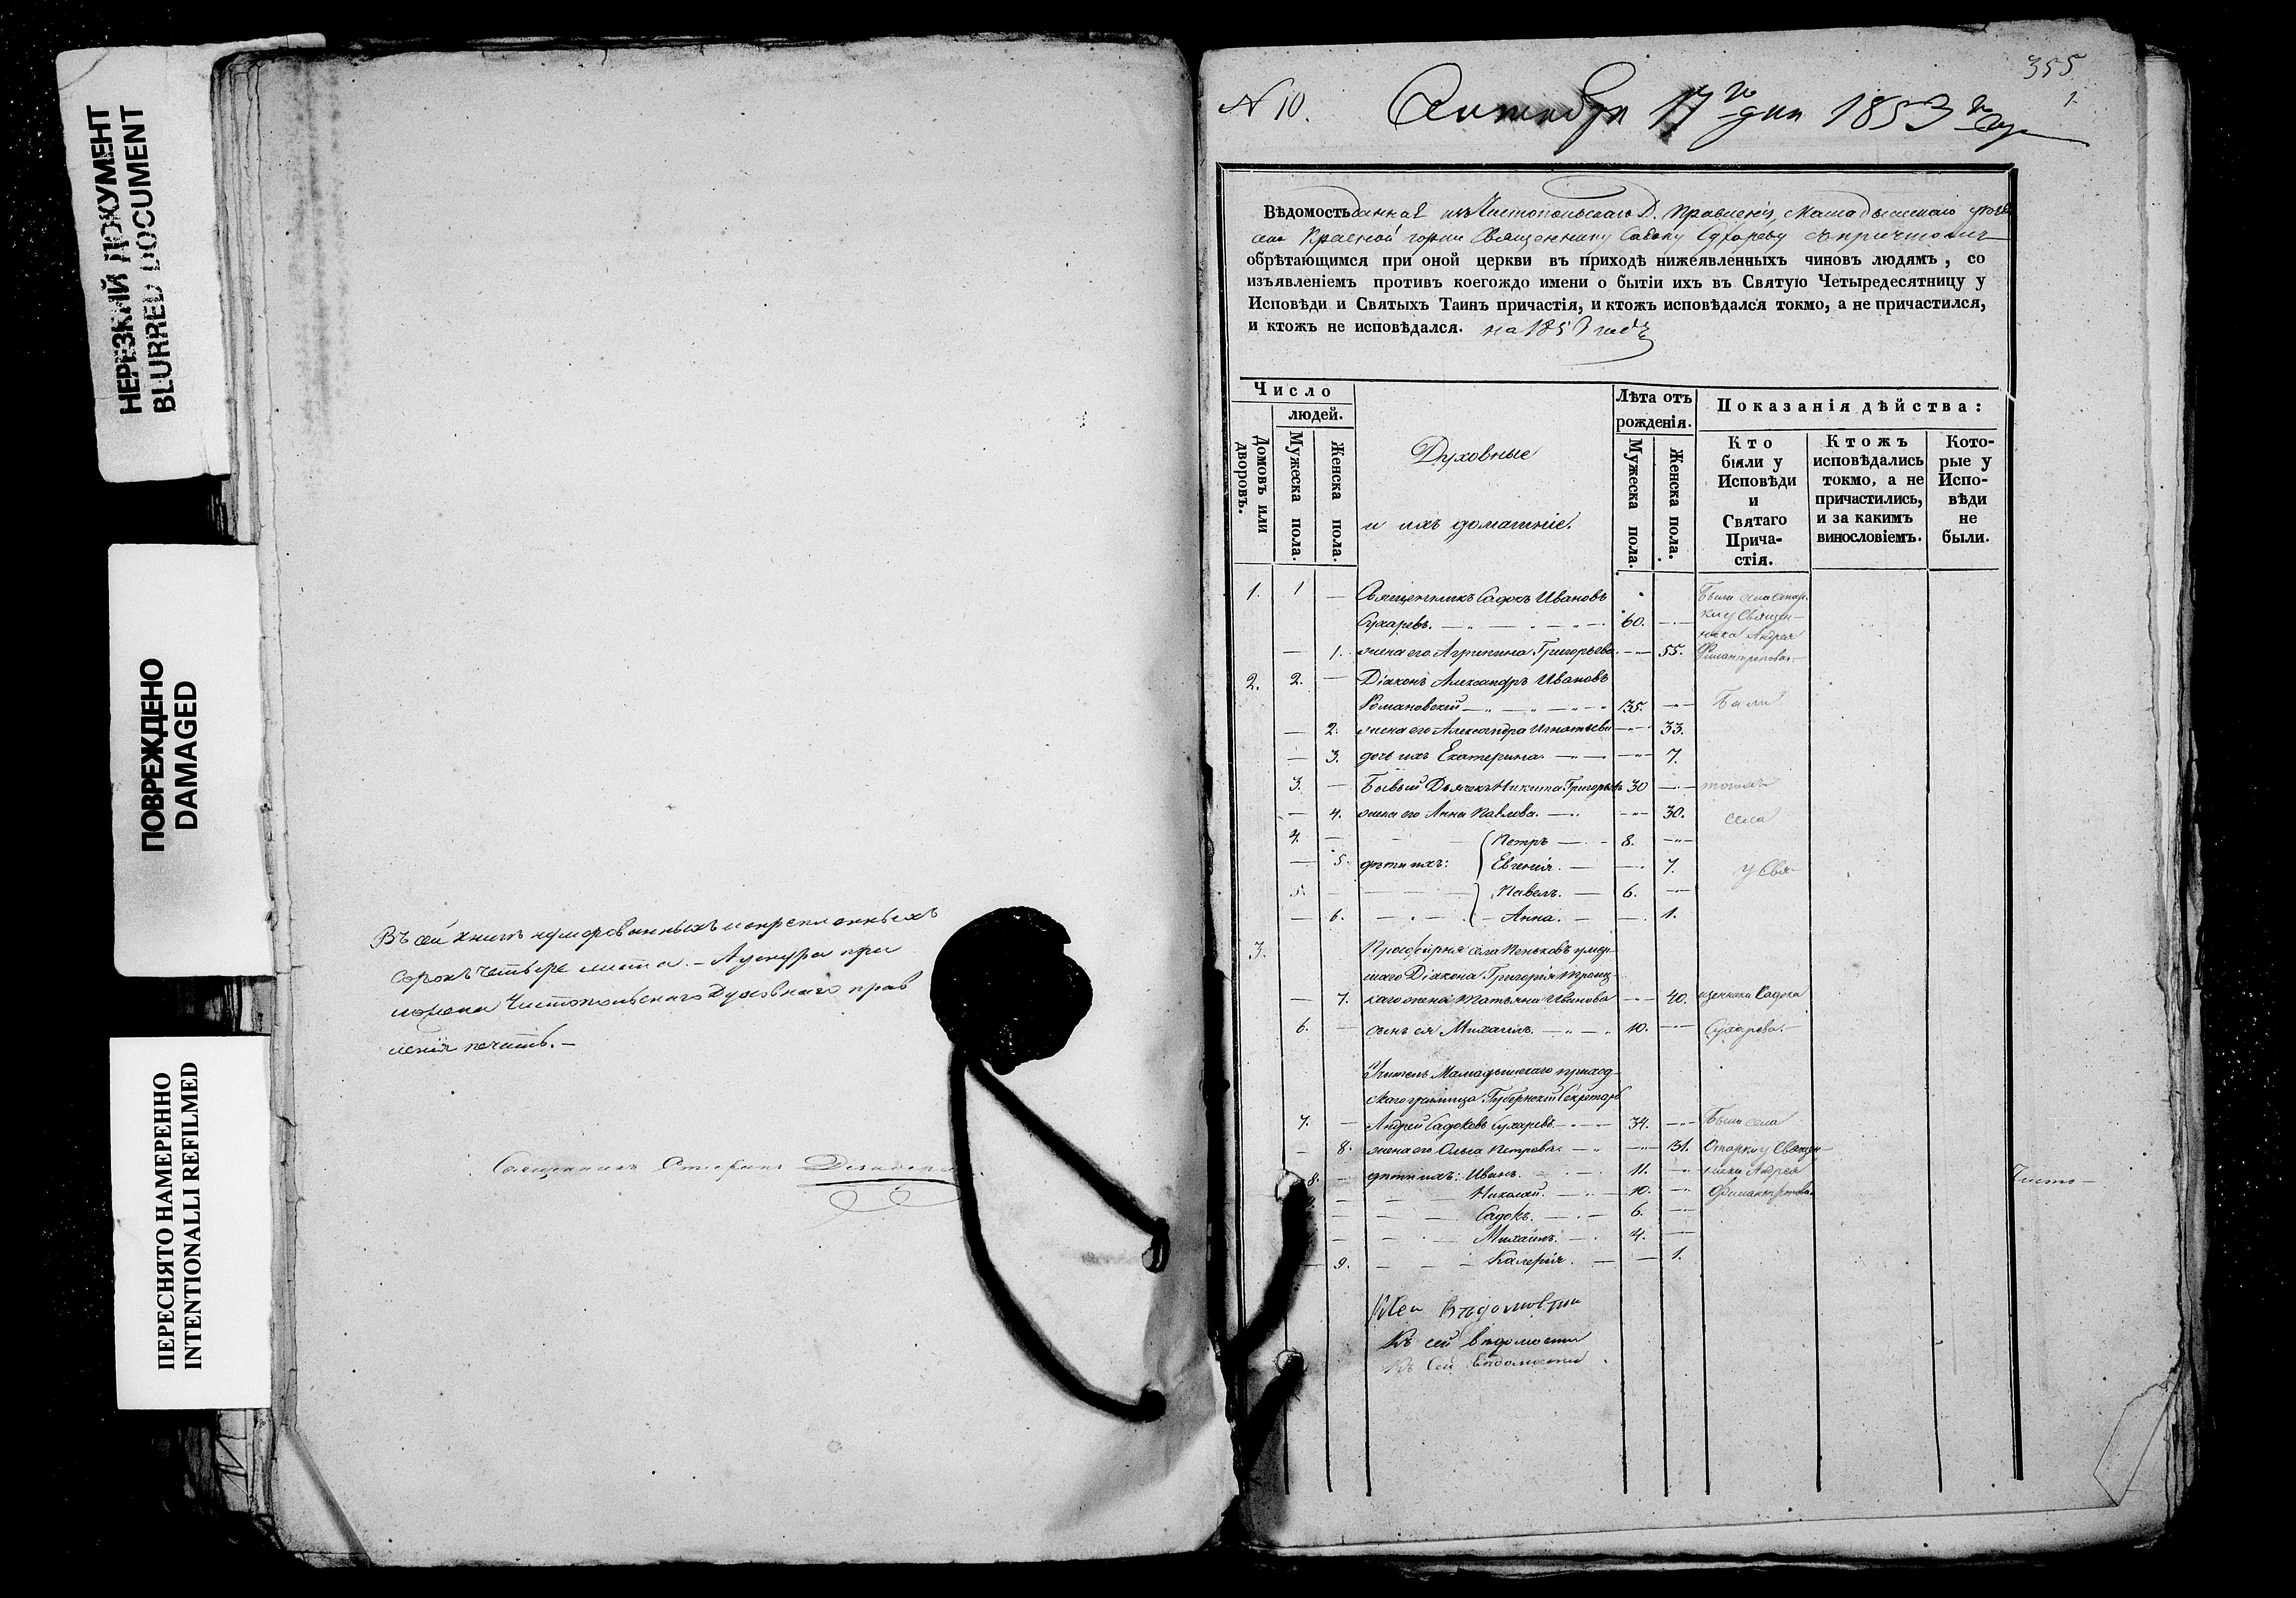 НЕРЕЗКИЙ ДОКУМЕНТ
BLURRED DOCUMENT
ПОВРЕЖДЕНО
DAMAGED
ПЕРЕСНЯТО НАМЕРЕННО
INTENTIONALLI REFILMED
Въ сей книгѣ нумерованныхъ и скрепленныхъ
сорокъ четыре листа. –
Чистопольскаго Духовнаго прав
ленія печать. –
Священникъ Стефанъ
355
1.
N 10. Октября 17го дня 1853 го
Вѣдомость данная изъ Чистопольскаго Д. Правленія, Мамадышскаго уѣзда
села Красной горки Священнику Садоку Сухареву съ причтомъ
обрѣтающимся при оной церкви въ приходѣ нижеявленныхъ чиновъ людямъ, со
изъявленіемъ противъ коегождо имени о бытіи ихъ въ Святую Четыредесятницу у
Исповѣди и Святыхъ Таинъ причастія, и ктожъ исповѣдался токмо, а не причастился,
и ктожъ не исповѣдался. на 1853 годъ
Число
людей.
Домовъ или дворовъ.
Мужеска пола.
Женска пола.
Духовные
и ихъ домашніе.
Лѣта отъ рожденія.
Мужеска пола.
Женска пола.
Показанія дѣйства:
Кто были у Исповѣди и Святаго Прича- стія.
Ктожъ исповѣдались токмо, а не причастились, и за какимъ винословіемъ.
Кото- рые у Испо- вѣди не были.
1. 1 — Священникъ Садокъ Ивановъ Были села
Сухаревъ. 60. — у Священ-
ника Андрея
— 1. жена его Агрипина Григорьева — 55. Филантропова
2. 2. — Діаконъ Александръ Ивановъ
Романовскій 35. — Были
— 2. жена его Александра Игнатьева — 33.
— 3. дочь ихъ Екатерина — 7.
3. — Бывый Дьячекъ Никита Григорьевъ 30 — тогожъ
— 4. жена его Анна Павлова. — 30. села
4. — Петръ 8. —
— 5. дѣти ихъ: Евгенія. — 7. у Свя-
5. — Павелъ. 6. —
— 6. Анна. — 1.
3. Просфирня села Пеньковъ умер-
шаго Діакона Григорія Троиц-
— 7. каго жена Татьяна Иванова — 40. щенника Садока
6. — сынъ ея Михаилъ. 10. — Сухарева. –
Учитель Мамадышскаго приход-
скаго училища Губернскій Секретарь
7. — Андрей Садоковъ Сухаревъ 34. — Были села
— 8. жена его Ольга Петрова — 31. у Священ-
8. — дѣти ихъ: Иванъ. 11. — ника Андрея
— Николай. 10. — Филантропова.
— Садокъ. 6. —
— Михаилъ. 4. —
— 9. Калерія. — 1.
Чисто –
Къ сей вѣдомости
Къ сей вѣдомости